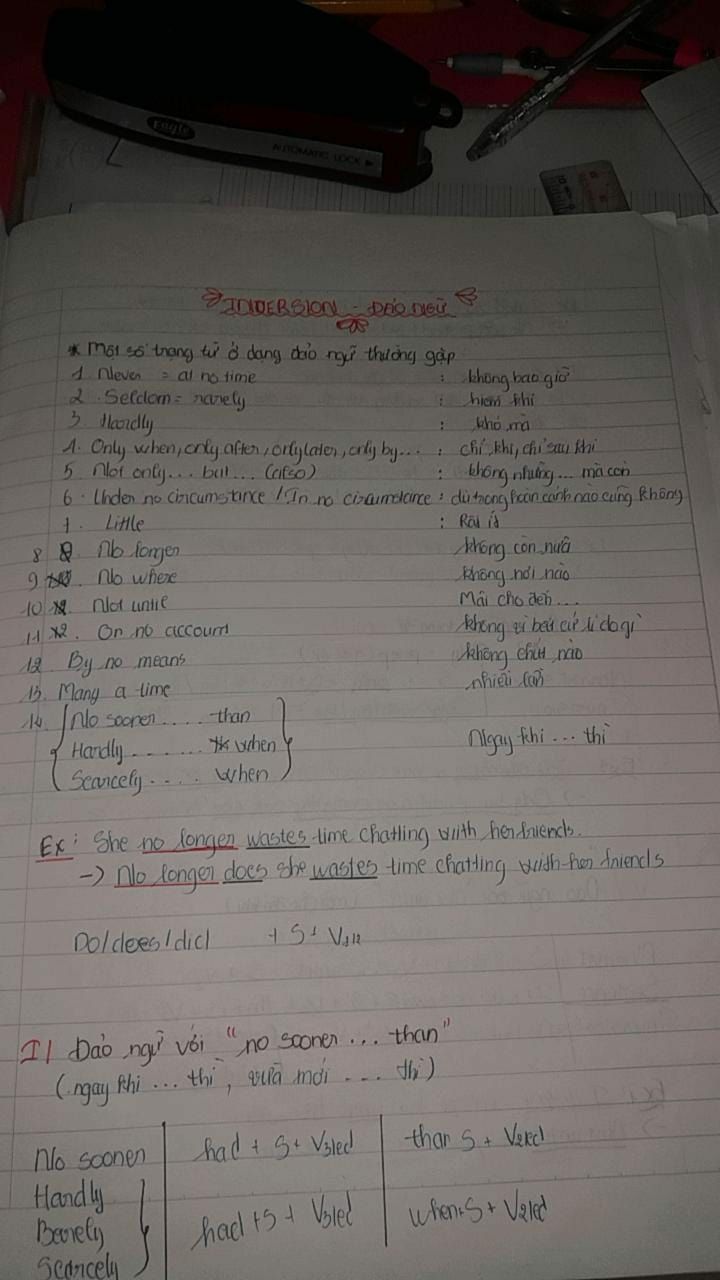 Eagle
AUTOMATIC LOCK
INVERSION - ĐẢO NGỮ
* Một số trạng từ ở dạng đảo ngữ thường gặp
1. Never = at no time : không bao giờ
2. Seldom = rarely : hiếm khi
3. Hardly : khó mà
4. Only when, only after, only later, only by... : chỉ khi, chỉ sau khi
5. Not only... but... (also) : không những... mà còn
6. Under no circumstance / In no circumstance : dù trong hoàn cảnh nào cũng không
7. Little : Rất ít
8. No longer không còn nữa
9. No where không nơi nào
10. Not until Mãi cho đến...
11. On no account không vì bất cứ lí do gì
12. By no means không chút nào
13. Many a time nhiều lần
14. No sooner..... than
Hardly....... when Ngay khi... thì
Scarcely..... when
Ex: She no longer wastes time chatting with her friends.
-> No longer does she wastes time chatting with her friends
Do/does/did + S +
II Đảo ngữ với "no sooner... than"
(ngay khi... thì, vừa mới... thì)
No sooner had + S + V3/ed than S + V2/ed
Hardly
Barely had + S + V3/ed when + S + V2/ed
Scarcely